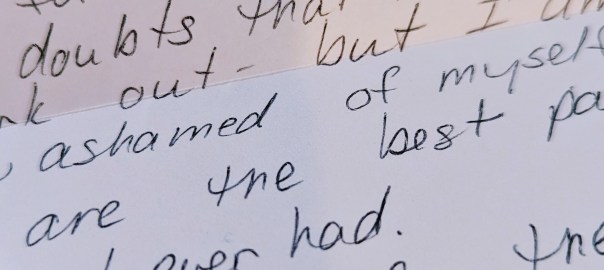 doubts tha
out - but I am
ashamed of myself
are the best pa
ever had.
the